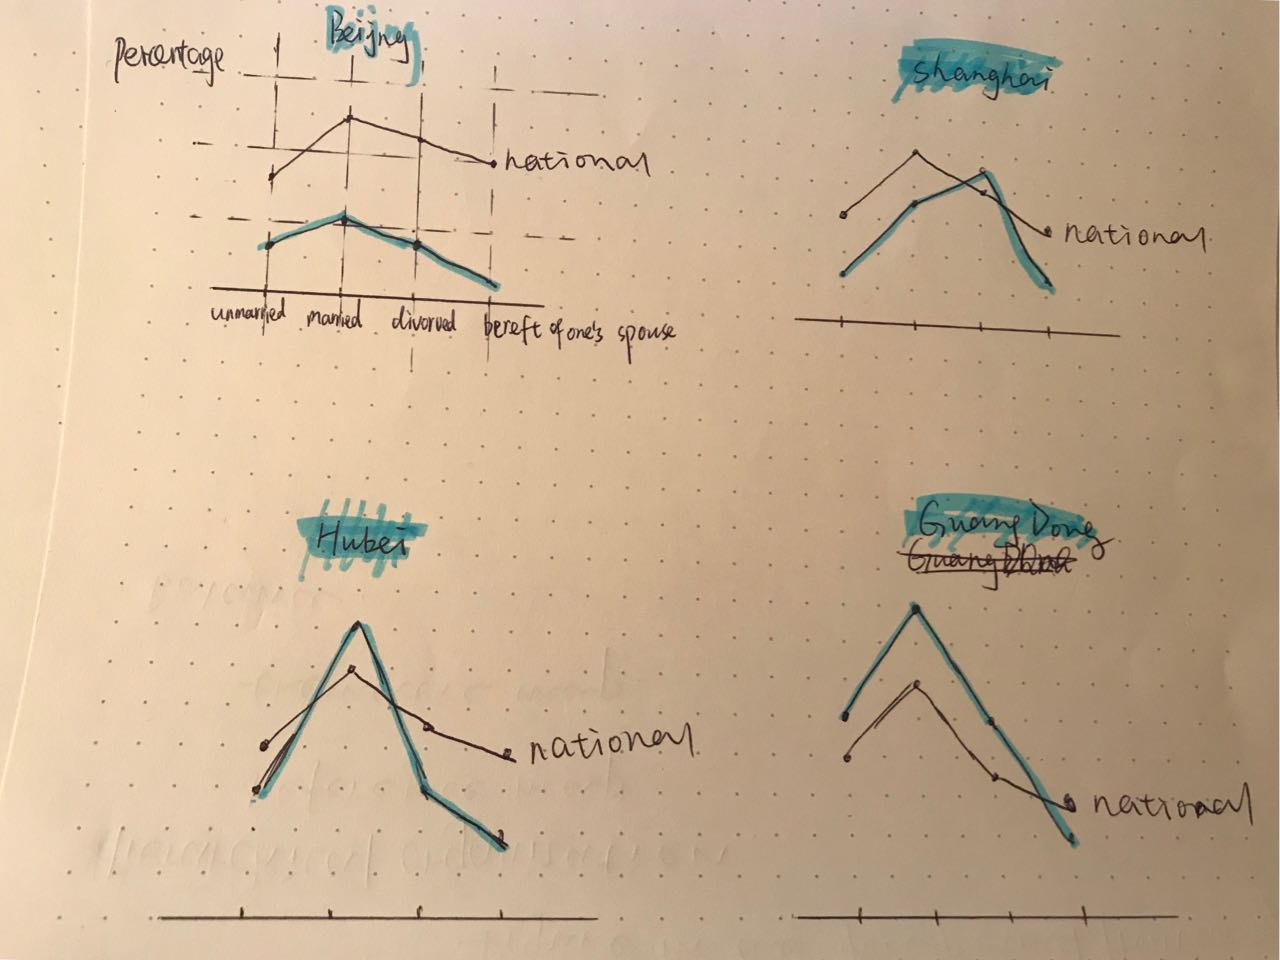 Percentage
Beijng
national
unmarried married divorved bereft of one's spouse
Shanghai
national
Hubei
national
Guang Dong
national